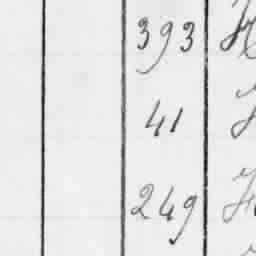 393
41
249